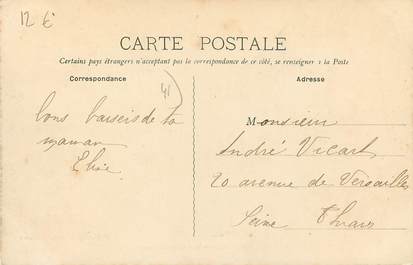 12 €
CARTE POSTALE
Certains pays étrangers n'acceptant pas la correspondance de ce côté, se renseigner à la Poste
Correspondance
Adresse
41
bons baisers de ta
maman
Elise
Monsieur
André Vicart
20 avenue de Versailles
Seine Thiais